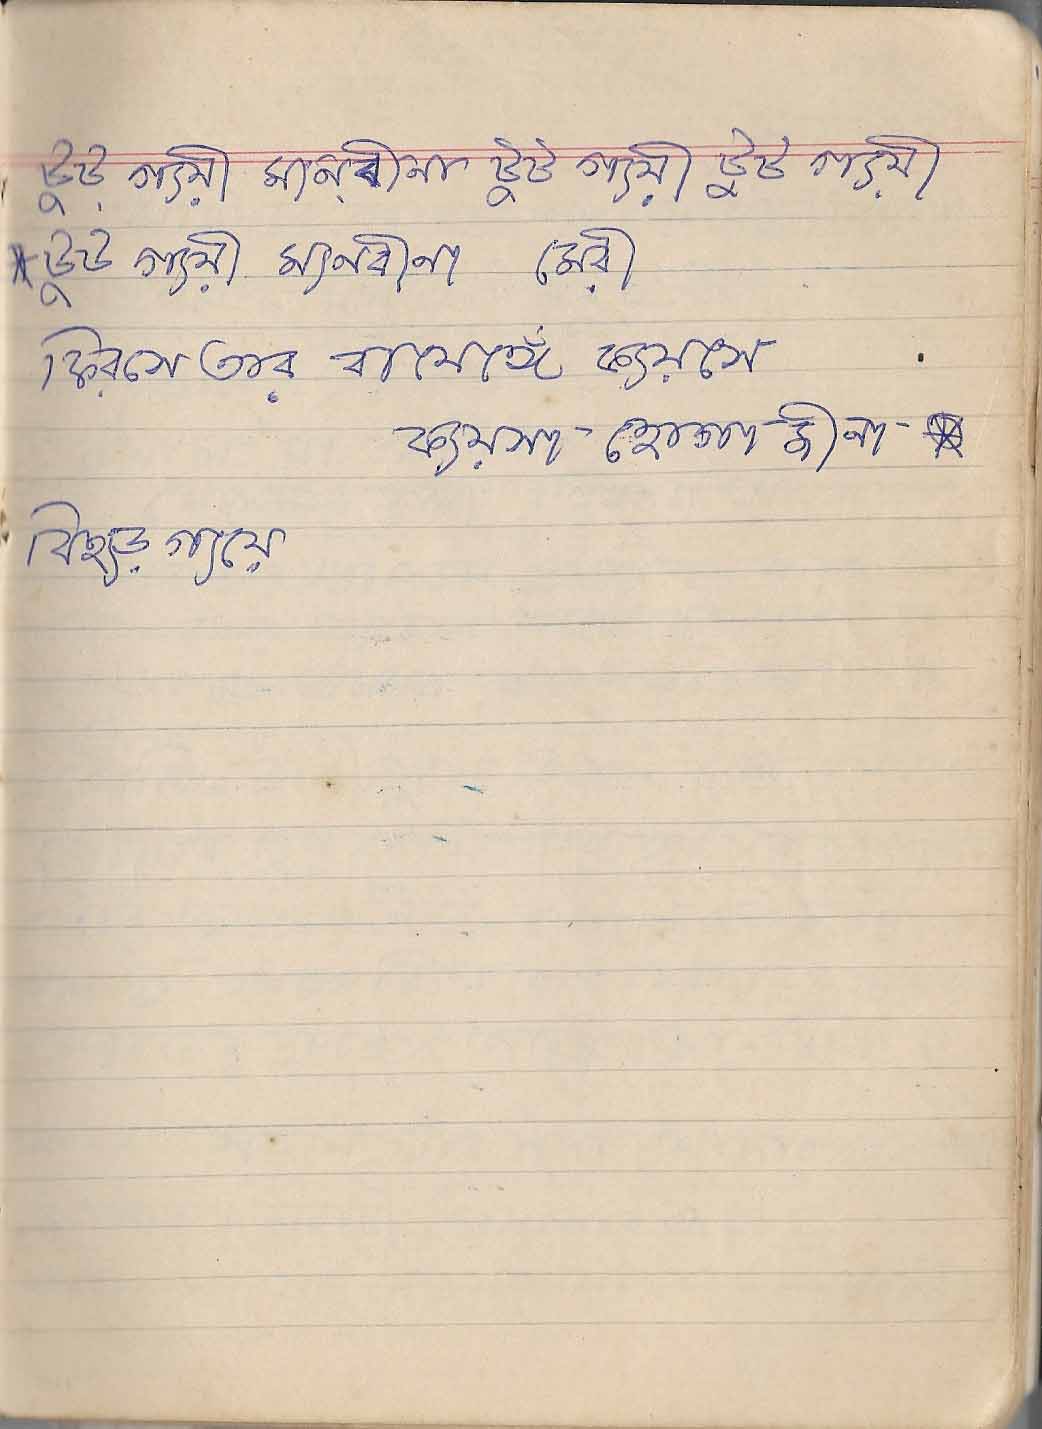 টুট গ্যয়ী ম্যন্‌বীনা টুট গ্যয়ী টুট গ্যয়ী
* টুট গ্যয়ী ম্যনবীনা মেরী
ফিরসে তার ক্যয়সে
ক্যয়সা - হোগা জীনা -
বিছ্যড় গ্যয়ে